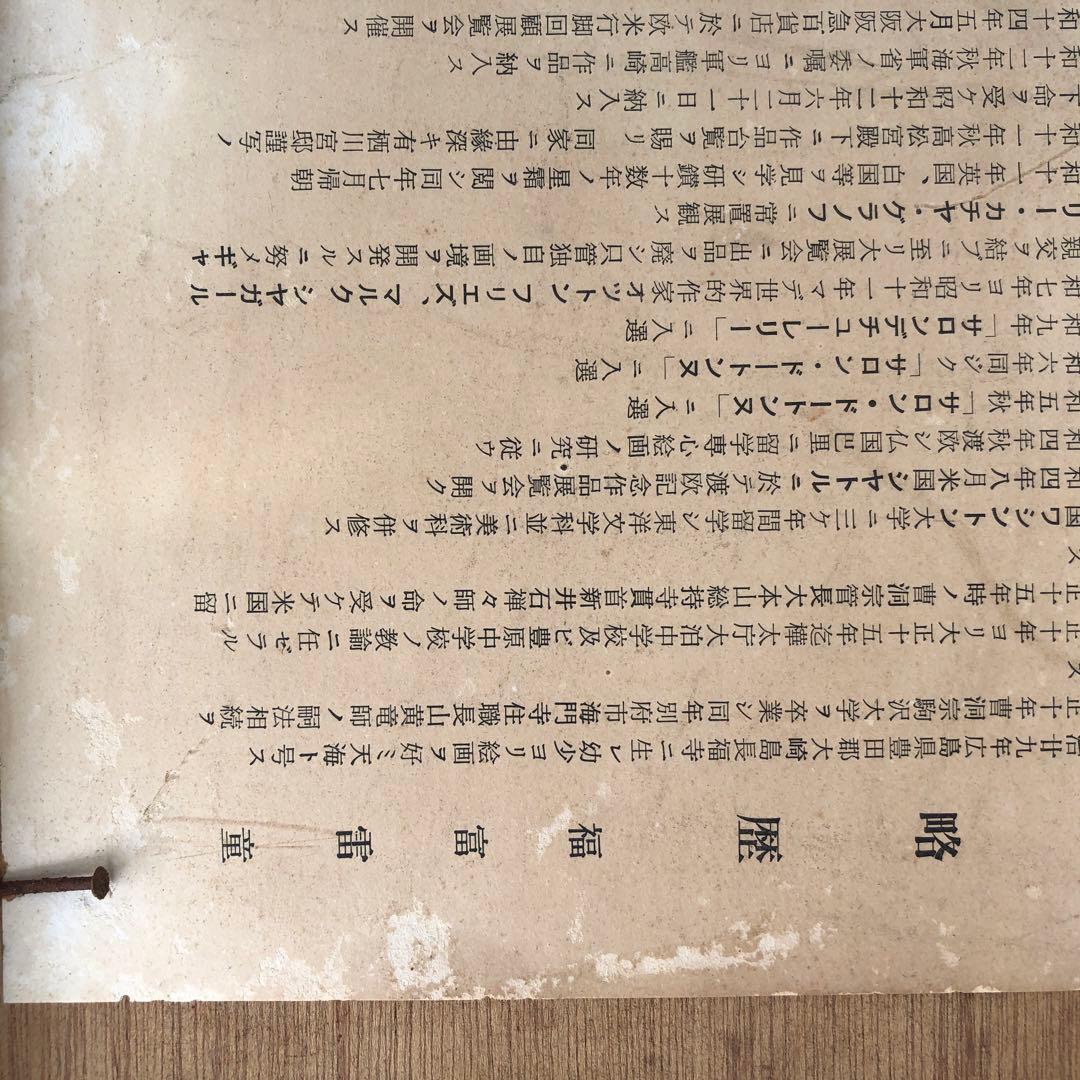 略歴 福富雷童
治廿九年広島県豊田郡大崎島長福寺ニ生レ幼少ヨリ絵画ヲ好ミ天海ト号ス
正十年曹洞宗駒沢大学ヲ卒業シ同年別府市海門寺住職長山黄竜師ノ嗣法相続ヲ
ス
正十年ヨリ大正十五年迄樺太庁大泊中学校及ビ豊原中学校ノ教諭ニ任ゼラル
正十五年時ノ曹洞宗管長大本山総持寺貫首新井石禅々師ノ命ヲ受ケテ米国ニ留
ス
国ワシントン大学ニ三ケ年間留学シ東洋文学科並ニ美術科ヲ併修ス
和四年八月米国シヤトルニ於テ渡欧記念作品展覧会ヲ開ク
和四年秋渡欧シ仏国巴里ニ留学専心絵画ノ研究ニ従ウ
和五年秋「サロン・ドートンヌ」ニ入選
和六年同ジク「サロン・ドートンヌ」ニ入選
和九年「サロンデチユーレリー」ニ入選
和七年ヨリ昭和十一年マデ世界的作家オツトン フリエズ、マルク シヤガール
親交ヲ結ブニ至リ大展覧会ニ出品ヲ廃シ只管独自ノ画境ヲ開発スルニ努メギャ
リー・カチヤ・グラノフニ常置展観ス
和十一年英国、白国等ヲ見学シ研鑽十数年ノ星霜ヲ閲シ同年七月帰朝
和十一年秋高松宮殿下ニ作品台覧ヲ賜リ 同家ニ由縁深キ有栖川宮邸謹写ノ
下命ヲ受ケ昭和十二年六月二十一日ニ納入ス
和十二年秋海軍省ノ委嘱ニヨリ軍艦高崎ニ作品ヲ納入ス
和十四年五月大阪阪急百貨店ニ於テ欧米行脚回顧展覧会ヲ開催ス